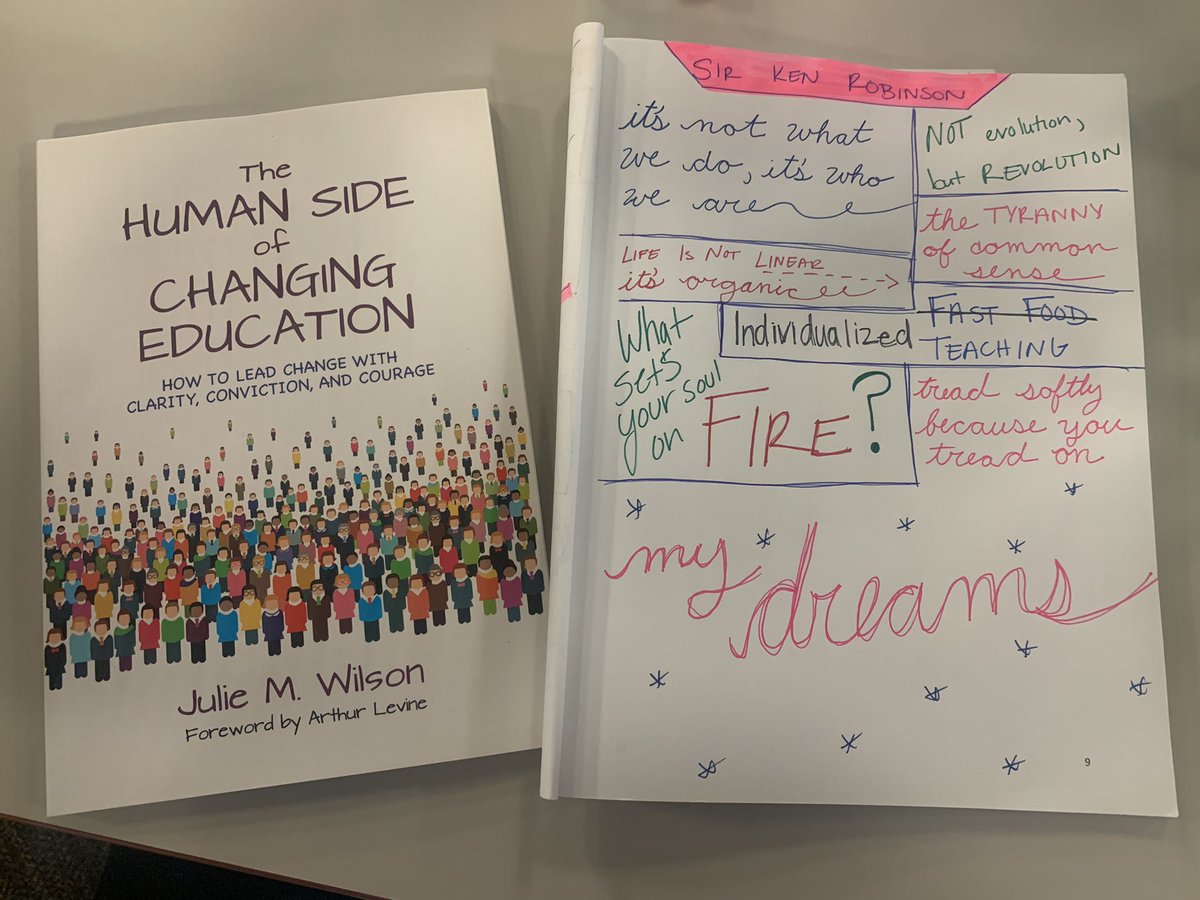 The
HUMAN SIDE
of
CHANGING
EDUCATION
HOW TO LEAD CHANGE WITH
CLARITY, CONVICTION, AND COURAGE
Julie M. Wilson
Foreword by Arthur Levine
SIR KEN ROBINSON
it's not what
we do, it's who
we are
NOT evolution,
but REVOLUTION
LIFE IS NOT LINEAR
it's organic
the TYRANNY
of common
sense
What
sets
your soul
on
FIRE?
Individualized
FAST FOOD
TEACHING
tread softly
because you
tread on
my dreams
9